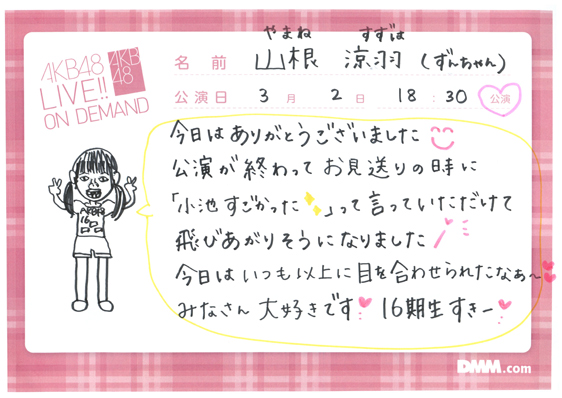 AKB48
LIVE!!
ON DEMAND
AKB
48
やまね すずは
名前 山根 涼羽 (ずんちゃん)
公演日 3月 2日 18:30 公演
今日はありがとうございました
公演が終わってお見送りの時に
「小池すごかった✨」って言っていただけて
飛びあがりそうになりました
今日はいつも以上に目を合わせられたなぁ〜
みなさん大好きです 16期生すきー
AKB
16
DMM.com